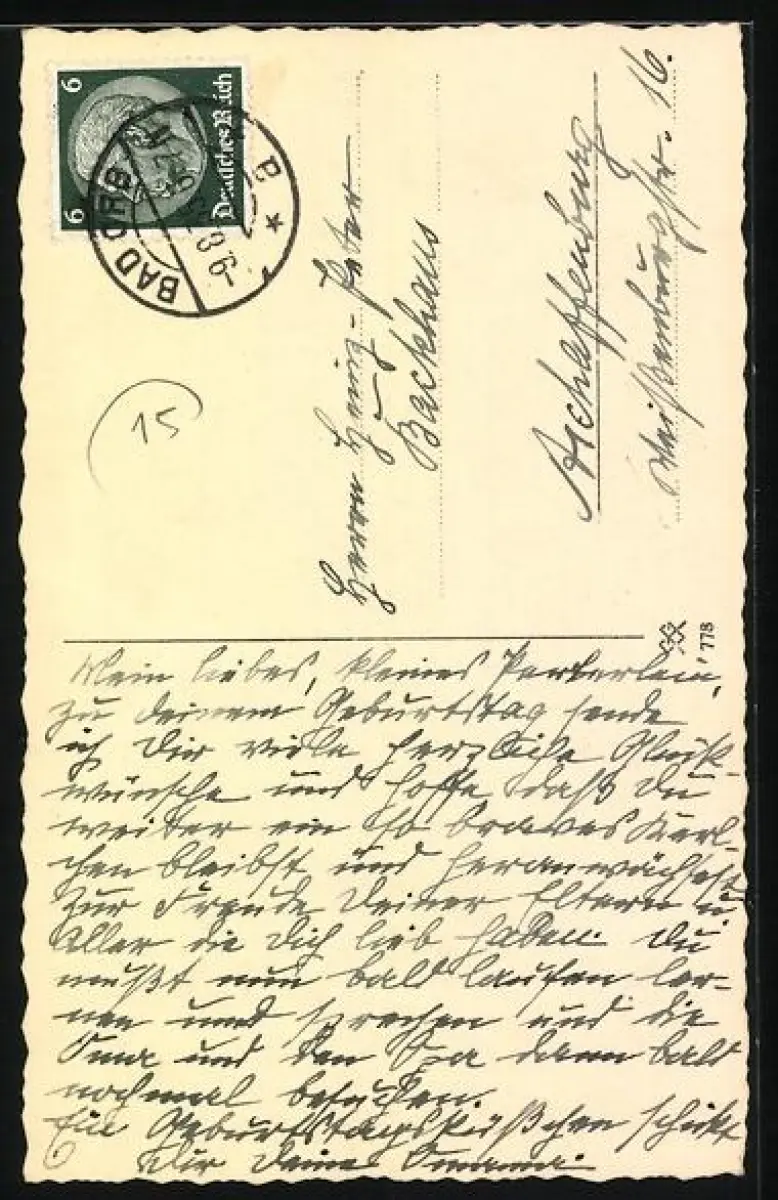 6 Deutsches Reich 6
BAD ORB
15
Herrn Heinz-Peter
Backhaus
Aschaffenburg
Weißenburgstr. 16.
778
Mein liebes, kleines Peterlein,
zu deinem Geburtstag sende
ich Dir viele herzliche Glück-
wünsche und hoffe daß Du
weiter ein so braves Kerl-
chen bleibst und heranwächst
zur Freude Deiner Eltern u.
Aller die Dich lieb haben. Du
mußt nun bald laufen ler-
nen und sprechen und die
Oma und den Opa dann bald
nochmal besuchen.
Ein Geburtstagsküßchen schickt
Dir Deine Omama.